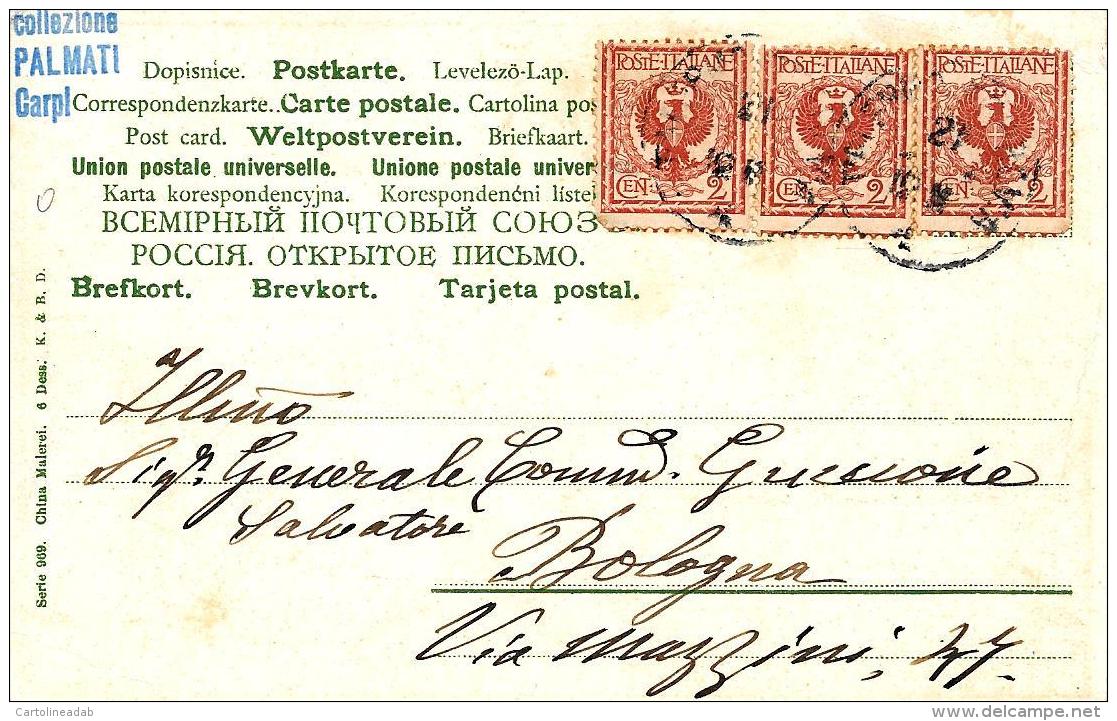 collezione
PALMATI
Carpi
Dopisnice. Postkarte. Levelezö-Lap.
Correspondenzkarte. Carte postale. Cartolina pos
Post card. Weltpostverein. Briefkaart.
Union postale universelle. Unione postale univer
Karta korespondencyjna. Korespondenčni líste
ВСЕМІРНЫЙ ПОЧТОВЫЙ СОЮЗ
РОССІЯ. ОТКРЫТОЕ ПИСЬМО.
Brefkort. Brevkort. Tarjeta postal.
POSTE·ITALIANE
CEN. 2
POSTE·ITALIANE
CEN. 2
POSTE·ITALIANE
CEN. 2
Serie 969. China Malerei. 6 Dess. K. & B. D.
Illmo
Sigr. Generale Comm.
Salvatore
Bologna
Via Mazzini, 47.
© Cartolineadab
http://www.delcampe.net